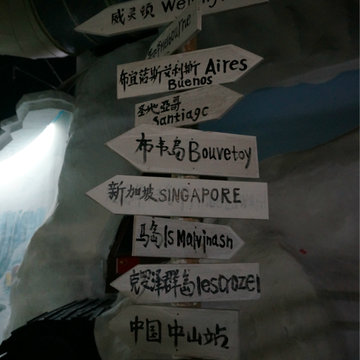 威灵顿 Wellin
Melbourne
布宜诺斯艾利斯 Aires
Buenos
圣地亚哥
Santiago
布韦岛 Bouvetoy
新加坡 SINGAPORE
马岛 Is Malvinash
克罗泽群岛 Iescrozet
中国中山站